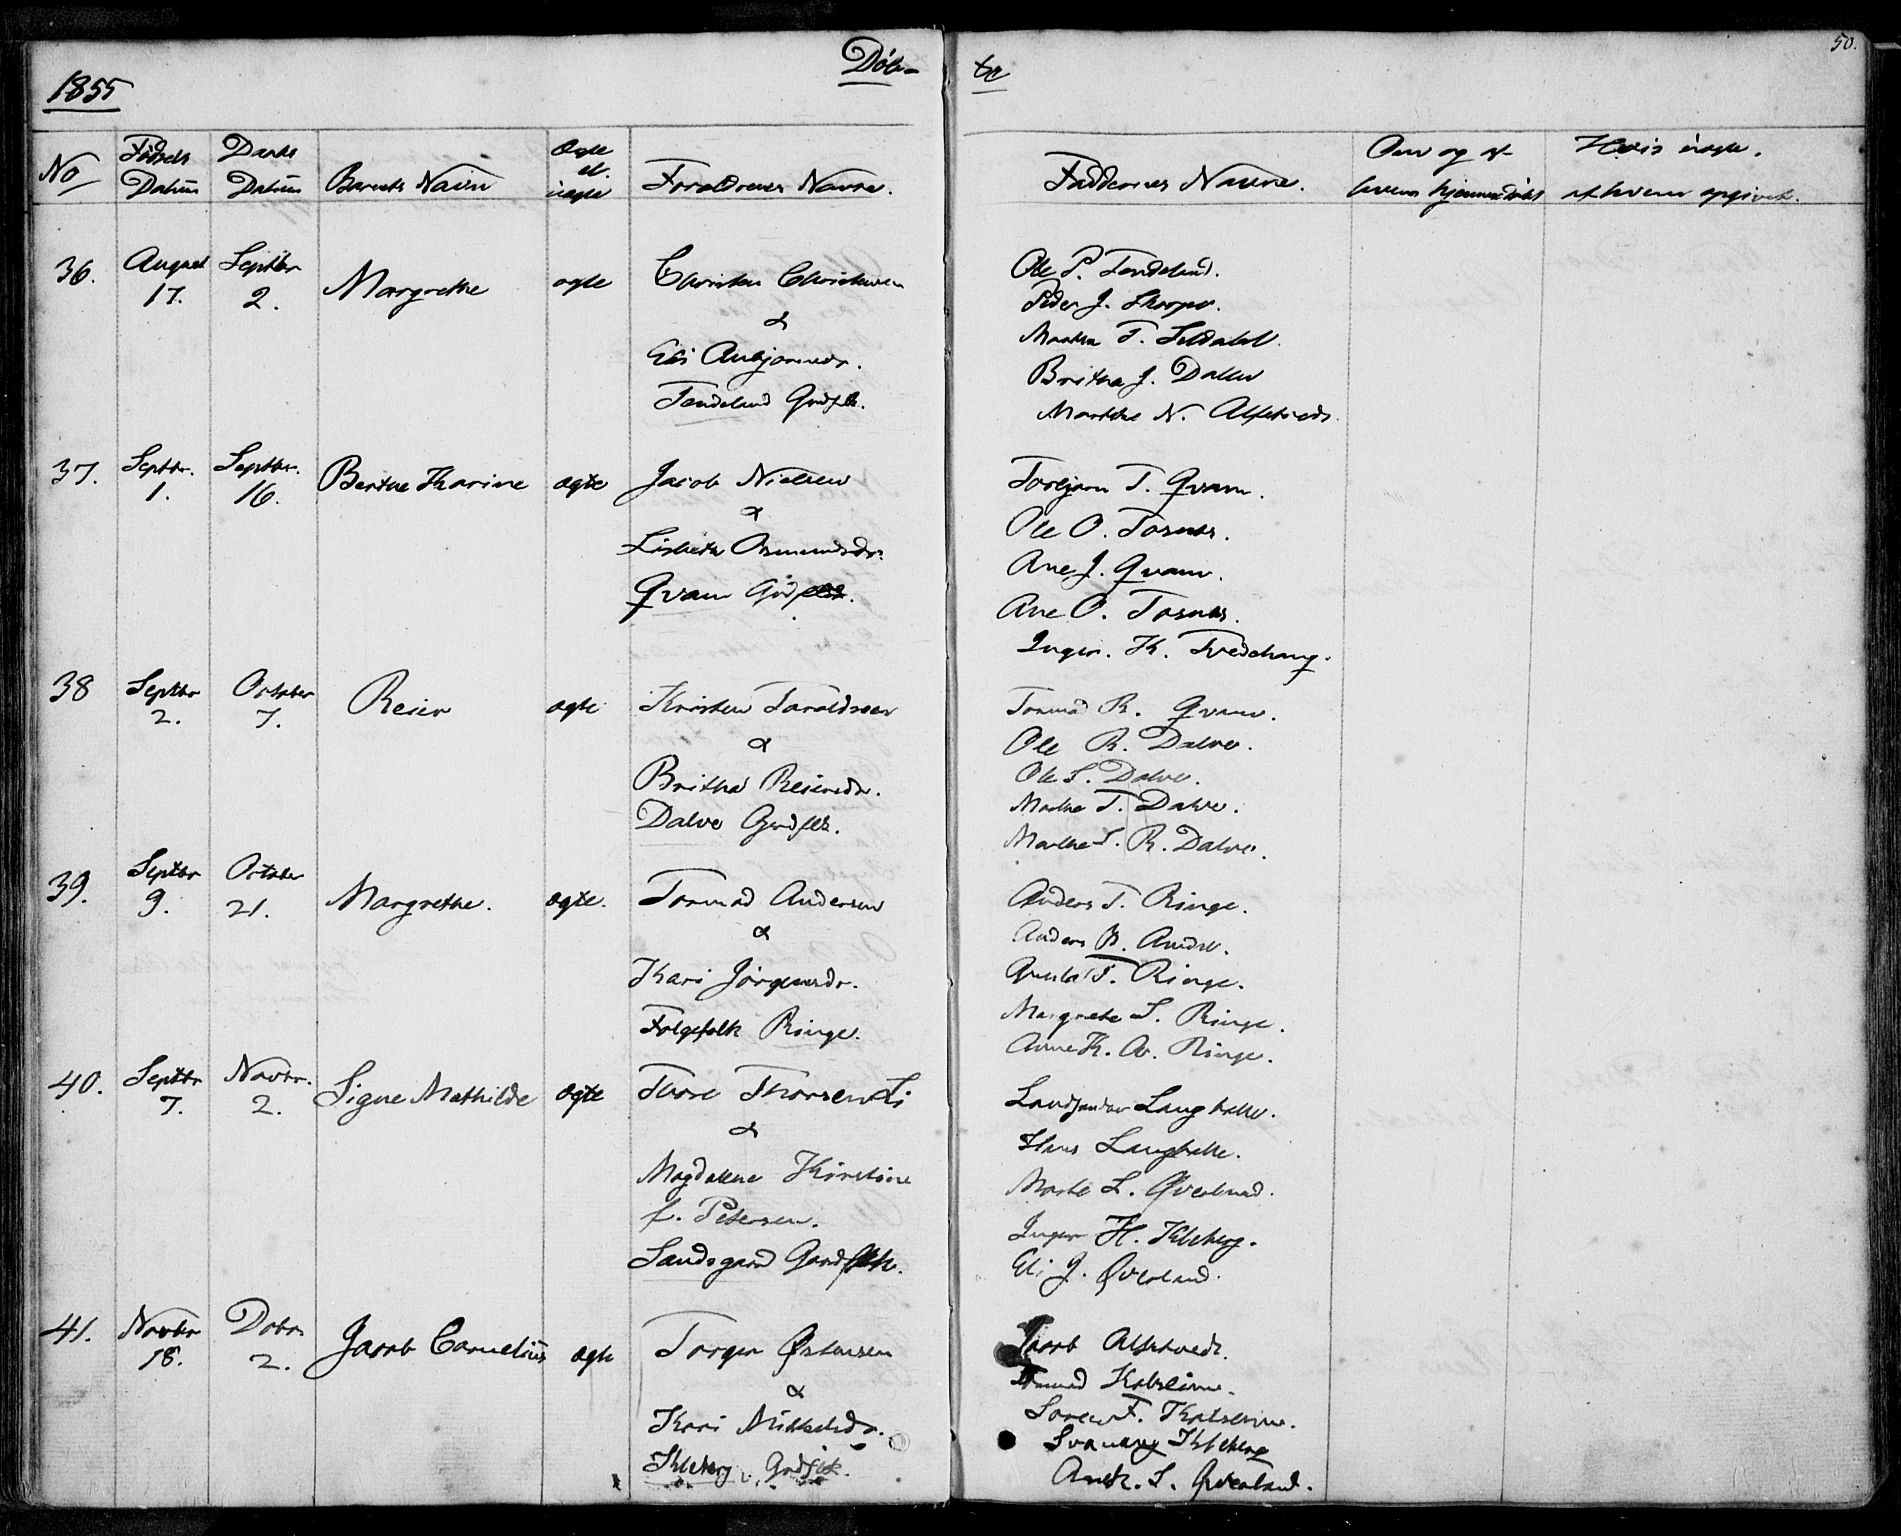 1855
Døb-
te
50.
No
Fødsels Datum
Daabs Datum
Barnets Navn
Ægte el. uægte
Forældrenes Navne.
Faddernes Navne.
Om og af hvem hjemmedøbt
Hvis uægte, af hvem opgivet.
36.
August 17.
Septbr 2.
Margrethe
ægte
Christen Christensen
&
Eli Anbjørnsdr.
Tendeland Grdflk.
Ole P. Tendeland.
Peder J. Skorpe.
Martha T. Seldahl.
Britha J. Dalve
Marthe N. Alfstveds.
37.
Septbr. 1.
Septbr. 16.
Berthe Karine
ægte
Jacob Nielsen
&
Lisbeth Osmundsdr.
Qvam Grdflk.
Torbjørn T. Qvam.
Ole O. Tosnæs.
Ane J. Qvam.
Ane O. Tosnæs.
Inger. K. Tvedehaug.
38
Septbr 2.
October 7.
Reier
ægte
Kristen Taroldsen
&
Britha Reiersdr.
Dalve Grdflk.
Tormod R. Qvam.
Ole R. Dalve.
Ole S. Dalve.
Marthe T. Dalve.
Marthe S. R. Dalve.
39.
Septbr 9.
October 21.
Margrethe.
ægte.
Tormod Andersen
&
Kari Jørgensdr.
Folgefolk Ringe.
Anders T. Ringe.
Anders B.
T. Ringe.
Margrete S. Ringe.
Anne K. A. Ringe.
40.
Septbr 7.
Novbr. 2.
Signe Mathilde
ægte
Thore Thorsen Li
&
Magdalene Kirstine
f. Petersen.
Sandsgaard Gaardflk.
Landhandler Langhelle.
Hans Langhelle.
Marte L. Øverland.
Inger H. Kleberg.
Eli J. Øverland.
41.
Novbr 18.
Dcbr 2.
Jacob Cornelius
ægte
Torger Østensen
&
Kari Mikkelsdr.
Kleberg Grdflk.
Jacob Alfstvedt.
Tormod
Soren T.
Kleberg
S. Øverland.